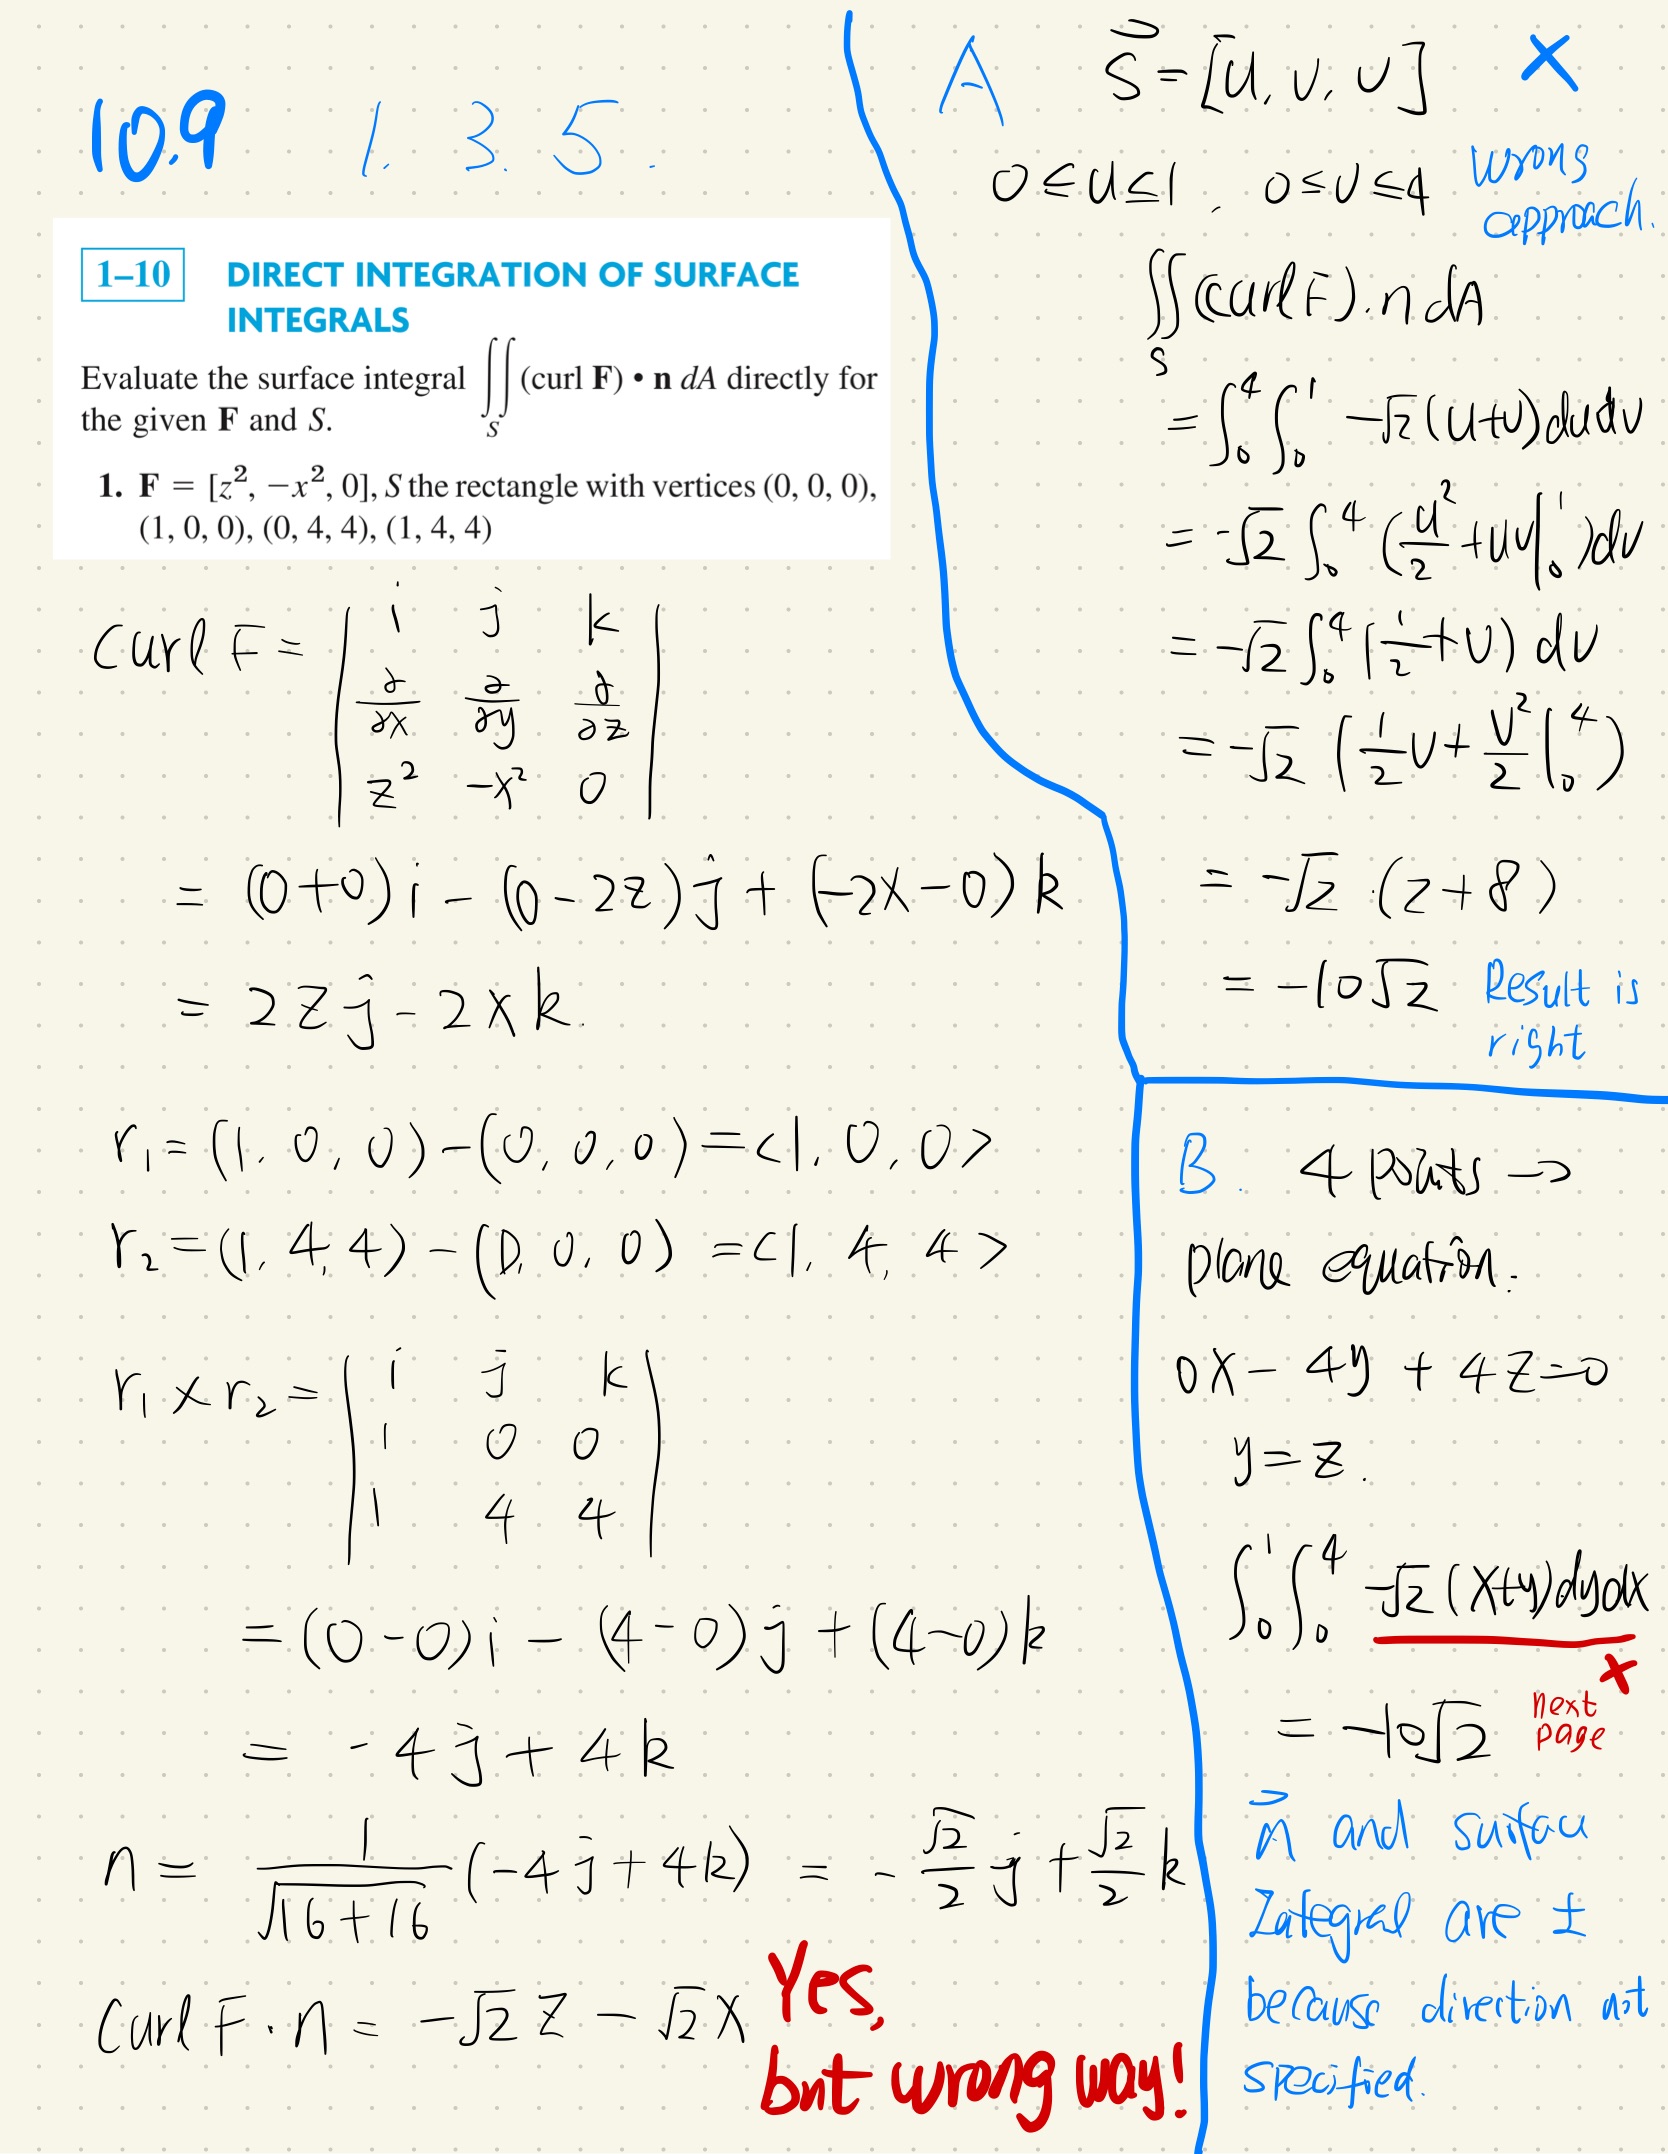 10.9 1. 3. 5.
1–10 DIRECT INTEGRATION OF SURFACE
INTEGRALS
Evaluate the surface integral ∬_S (curl F) • n dA directly for
the given F and S.
1. F = [z², −x², 0], S the rectangle with vertices (0, 0, 0),
(1, 0, 0), (0, 4, 4), (1, 4, 4)
Curl F = | i j k
∂/∂x ∂/∂y ∂/∂z
z² -x² 0 |
= (0+0) i - (0-2z) ĵ + (-2x-0) k
= 2z ĵ - 2x k.
r₁ = (1, 0, 0) - (0, 0, 0) = <1, 0, 0>
r₂ = (1, 4, 4) - (0, 0, 0) = <1, 4, 4>
r₁ × r₂ = | i j k
1 0 0
1 4 4 |
= (0-0) i - (4-0) j + (4-0) k
= -4 j + 4 k
n = 1/√(16+16) (-4 j + 4 k) = - √2/2 j + √2/2 k
Curl F · n = -√2 z - √2 x
Yes,
but wrong way!
A S⃗ = [u, v, v] ×
0 ≤ u ≤ 1, 0 ≤ v ≤ 4
wrong
approach.
∬_S (curl F) · n dA
= ∫₀⁴ ∫₀¹ -√2 (u+v) du dv
= -√2 ∫₀⁴ (u²/2 + uv |₀¹) dv
= -√2 ∫₀⁴ (1/2 + v) dv
= -√2 (1/2 v + v²/2 |₀⁴)
= -√2 · (2+8)
= -10√2
Result is
right
B. 4 points →
plane equation.
0x - 4y + 4z = 0
y = z.
∫₀¹ ∫₀⁴ -√2 (x+y) dy dx
×
= -10√2
next
page
n⃗ and surface
Integral are ±
because direction not
specified.